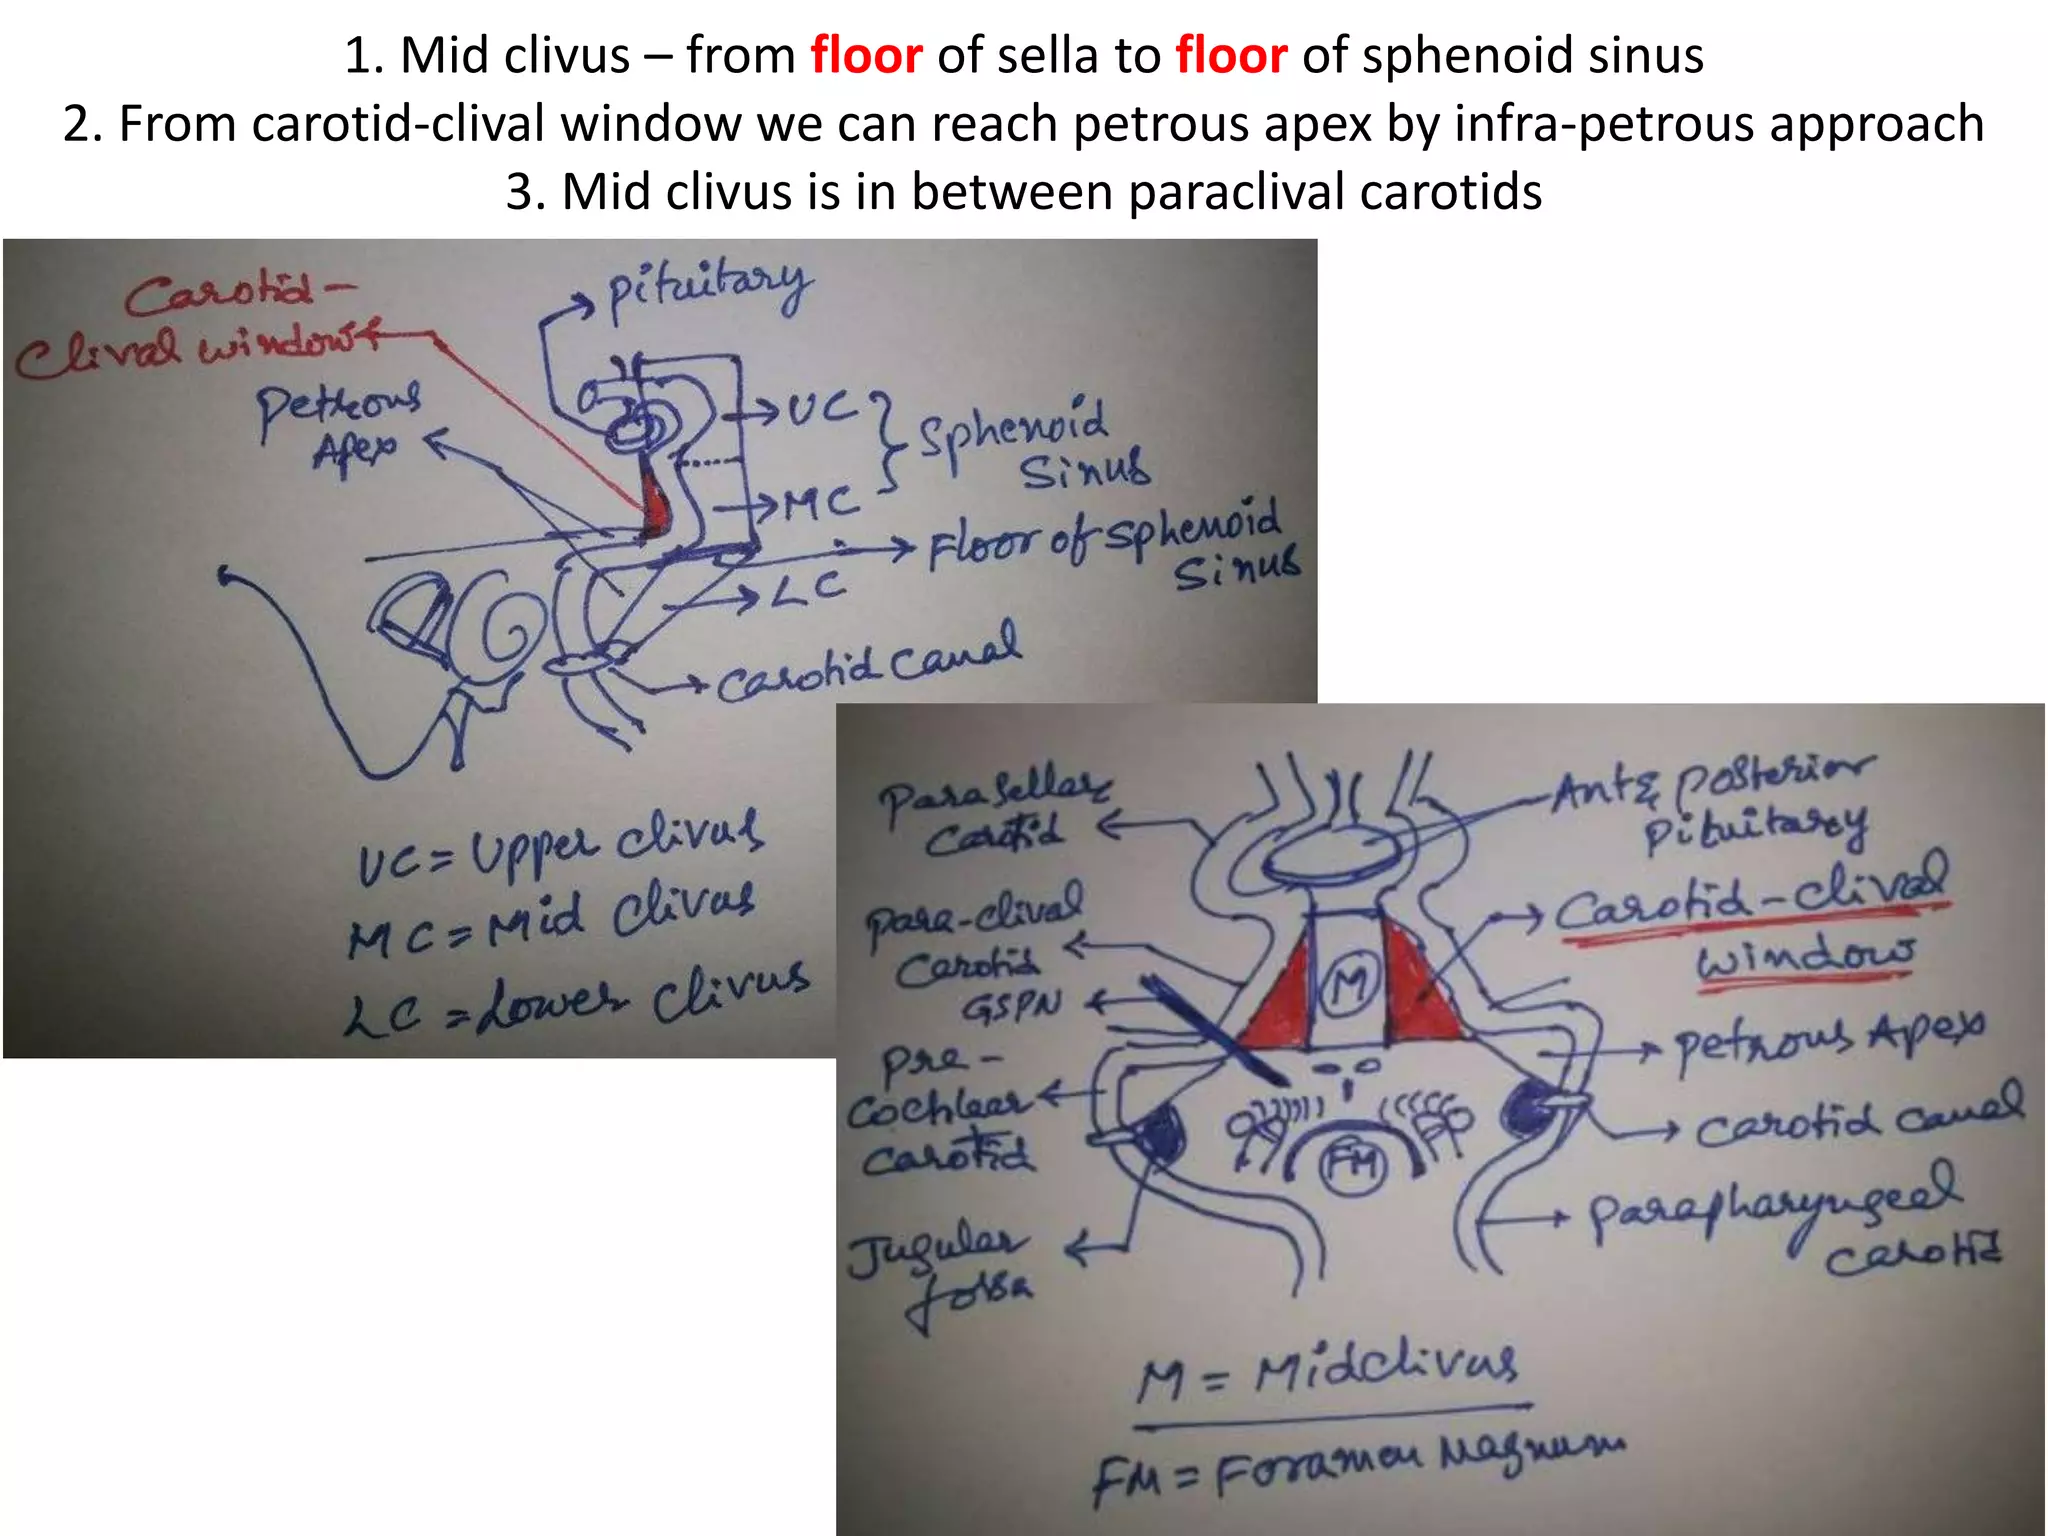 1. Mid clivus – from floor of sella to floor of sphenoid sinus
2. From carotid-clival window we can reach petrous apex by infra-petrous approach
3. Mid clivus is in between paraclival carotids
Carotid-
Clival window
Pituitary
Petrous
Apex
UC
MC
Sphenoid
Sinus
Floor of Sphenoid
Sinus
LC
Carotid Canal
UC = Upper Clivus
MC = Mid Clivus
LC = Lower Clivus
Parasellar
Carotid
Ant & Posterior
Pituitary
Para-clival
Carotid
Carotid-Clival
Window
GSPN
M
Petrous Apex
Pre-
Cochlear
Carotid
Carotid Canal
FM
Parapharyngeal
Carotid
Jugular
fossa
M = Midclivus
FM = Foramen Magnum